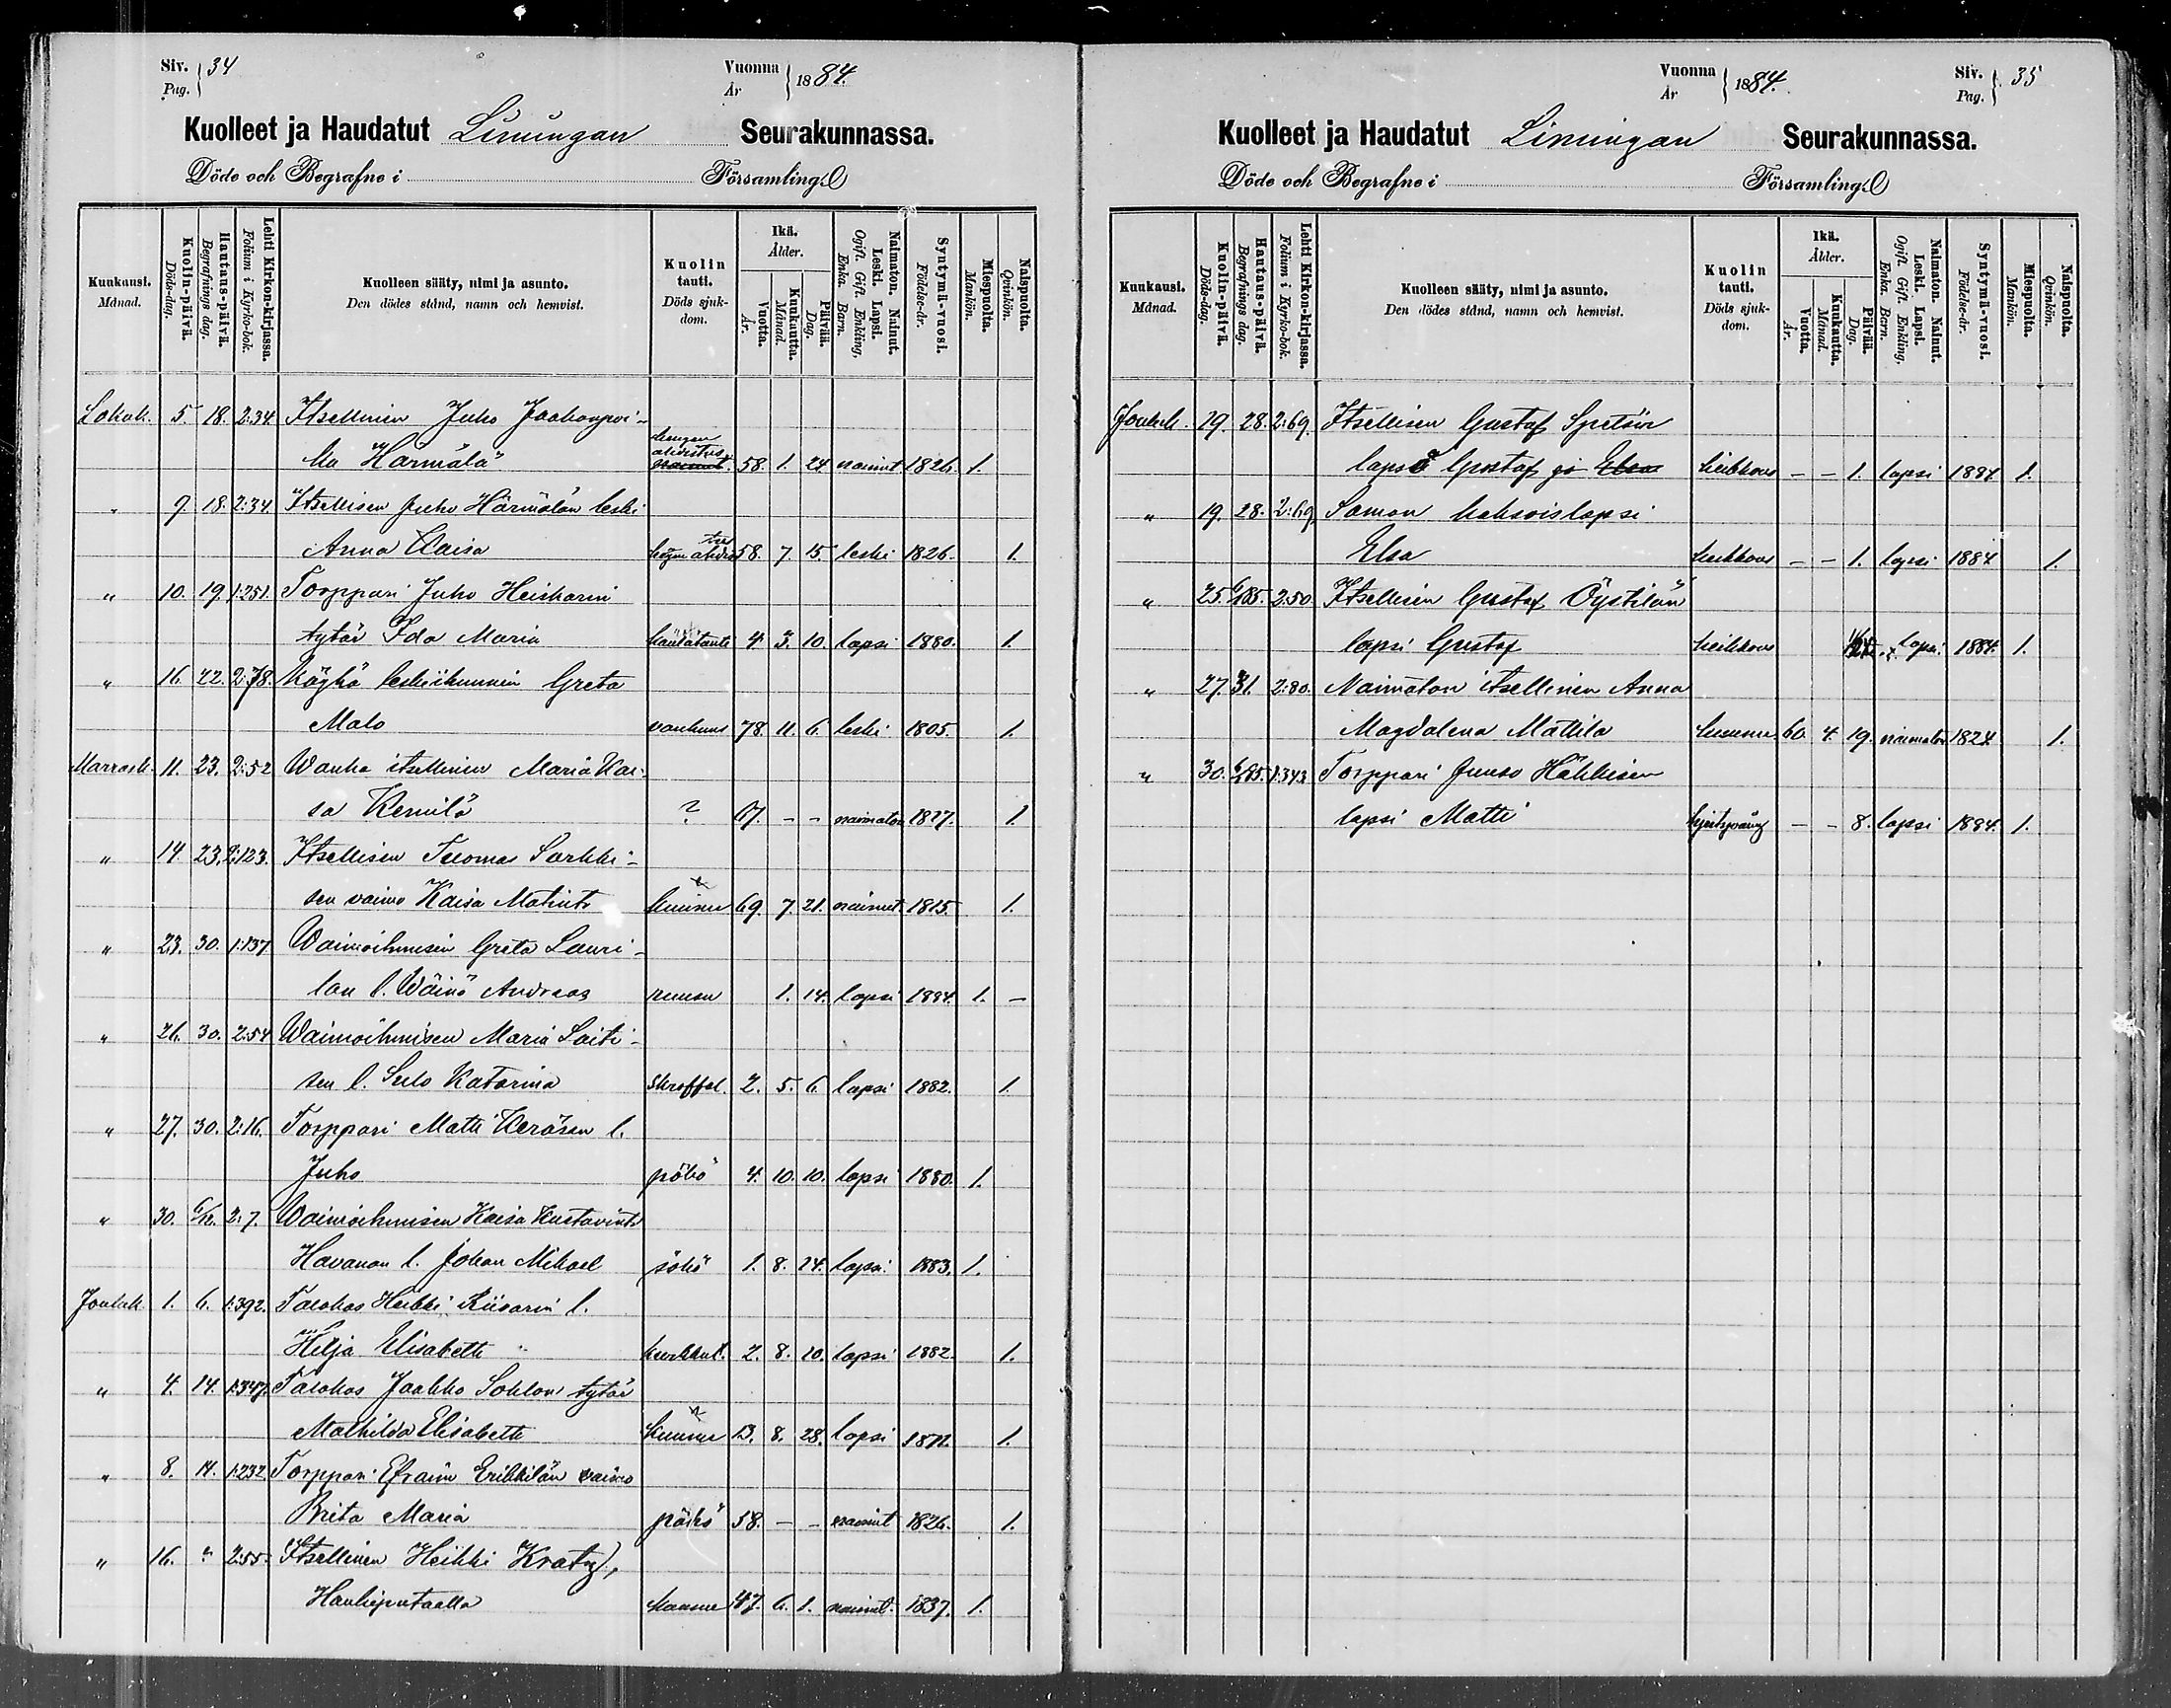 Siv. 34
Pag.
Vuonna 1884.
År
Kuolleet ja Haudatut Limingan Seurakunnassa.
Döde och Begrafne i Församling.
Kuukausi. Månad.
Kuolin-päivä. Döds-dag.
Hautaus-päivä. Begrafnings dag.
Lehti Kirkon-kirjassa. Folium i Kyrko-bok.
Kuolleen sääty, nimi ja asunto.
Den dödes stånd, namn och hemvist.
Kuolin tauti. Döds sjukdom.
Ikä. Ålder.
Vuotta. År.
Kuukautta. Månad.
Päivää. Dag.
Naimaton. Nainut. Leski. Lapsi.
Ogift. Gift. Enkling. Enka. Barn.
Syntymä-vuosi. Födelse-år.
Miespuolta. Mankön.
Naispuolta. Qvinkön.
Lokak. 5. 18. 2:34 Itsellinen Juho Jaakonpoi-
ka Härmälä hengen ahdistus 58. 1. 24 nainut 1826. 1.
" 9 18. 2:34 Itsellisen Juho Härmälän leski
Anna Kaisa 58. 7. 15. leski 1826. 1.
" 10. 19. 1:251. Torppari Juho Heiskarin
tytär Ida Maria 4. 3. 10. lapsi 1880. 1.
" 16. 22. 2:78. Köyhä leskiihminen Greta
Malo vanhuus 78. 11. 6. leski 1805. 1.
Marrask. 11. 23. 2:52 Wanha itsellinen Maria Kai-
sa Kemilä ? 67. - - naimaton 1827. 1
" 14 23. 2:123. Itsellisen Tuomas Sarkki-
sen vaimo Kaisa Matint. kuume 69. 7. 21. nainut. 1815. 1.
" 23. 30. 1:137 Waimoihmisen Greta Lauri-
lan l. Wäinö Andreas 1. 14. lapsi 1884. 1. -
" 26. 30. 2:54 Waimoihmisen Maria Laiti-
sen l. Sulo Katarina skroffel. 2. 5. 6. lapsi 1882. 1.
" 27. 30. 2:16. Torppari Matti Keräsen l.
Juho pöhö 4. 10. 10. lapsi 1880. 1.
" 30. 6/12. 2:7. Waimoihmisen Kaisa Kustavint.
Havanan l. Johan Mikael 1. 8. 24. lapsi 1883. 1.
Jouluk. 1. 6. 1:392. Talokas Heikki Kiisarin l.
Hilja Elisabetti kurkkut. 2. 8. 10. lapsi 1882. 1.
" 4. 14. 1:347. Talokas Jaakko Sohlon tytär
Mathilda Elisabetti kuume 13. 8. 28. lapsi 1871. 1.
" 8. 14. 1:232 Torppari Efraim Erikkilän vaimo
Brita Maria pöhö 58. - - nainut 1826. 1.
" 16. " 2:55. Itsellinen Heikki Kratz,
Haukiputaalla kuume 47. 6. 1. nainut. 1837. 1.
Vuonna 1884.
År
Siv. 35
Pag.
Kuolleet ja Haudatut Limingan Seurakunnassa.
Döde och Begrafne i Församling.
Kuukausi. Månad.
Kuolin-päivä. Döds-dag.
Hautaus-päivä. Begrafnings dag.
Lehti Kirkon-kirjassa. Folium i Kyrko-bok.
Kuolleen sääty, nimi ja asunto.
Den dödes stånd, namn och hemvist.
Kuolin tauti. Döds sjukdom.
Ikä. Ålder.
Vuotta. År.
Kuukautta. Månad.
Päivää. Dag.
Naimaton. Nainut. Leski. Lapsi.
Ogift. Gift. Enkling. Enka. Barn.
Syntymä-vuosi. Födelse-år.
Miespuolta. Mankön.
Naispuolta. Qvinkön.
Jouluk. 19. 28. 2:69. Itsellisen Gustaf
lapsi Gustaf ja Elsa heikkous - - 1. lapsi 1884 1.
" 19. 28. 2:69. Saman kaksoislapsi
Elsa heikkous - - 1. lapsi 1884 1.
" 25. 2:50. Itsellisen Gustaf Öystilän
lapsi Gustaf heikkous lapsi 1884. 1.
" 27. 31. 2:80. Naimaton itsellinen Anna
Magdalena Mattila kuume 60. 4. 19. naimaton 1824 1.
" 30. 1:343. Torppari Juuso Häkkisen
lapsi Matti - - 8. lapsi 1884. 1.